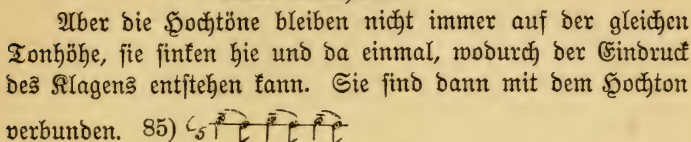 Aber die Hochtöne bleiben nicht immer auf der gleichen
Tonhöhe, sie sinken hie und da einmal, wodurch der Eindruck
des Klagens entstehen kann. Sie sind dann mit dem Hochton
verbunden. 85)